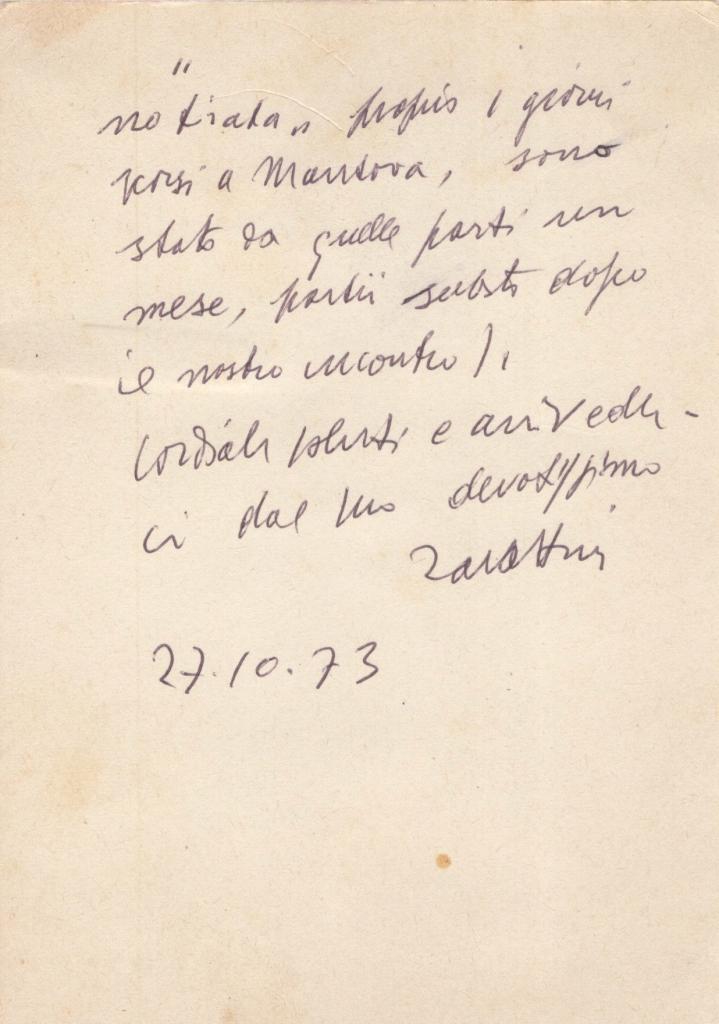 no "tirata„ proprio i giorni
scorsi a Mantova, sono
stato da quelle parti un
mese, partii subito dopo
il nostro incontro).
Cordiali saluti e arriveder-
ci dal suo devotissimo
Zavattini
27.10.73